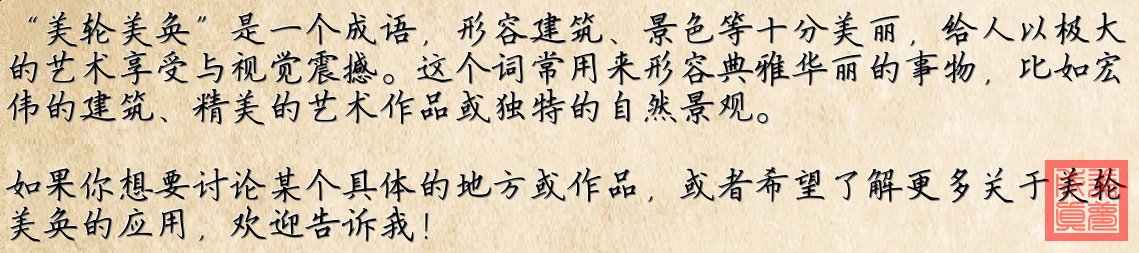 “美轮美奂”是一个成语，形容建筑、景色等十分美丽，给人以极大
的艺术享受与视觉震撼。这个词常用来形容典雅华丽的事物，比如宏
伟的建筑、精美的艺术作品或独特的自然景观。
如果你想要讨论某个具体的地方或作品，或者希望了解更多关于美轮
美奂的应用，欢迎告诉我！